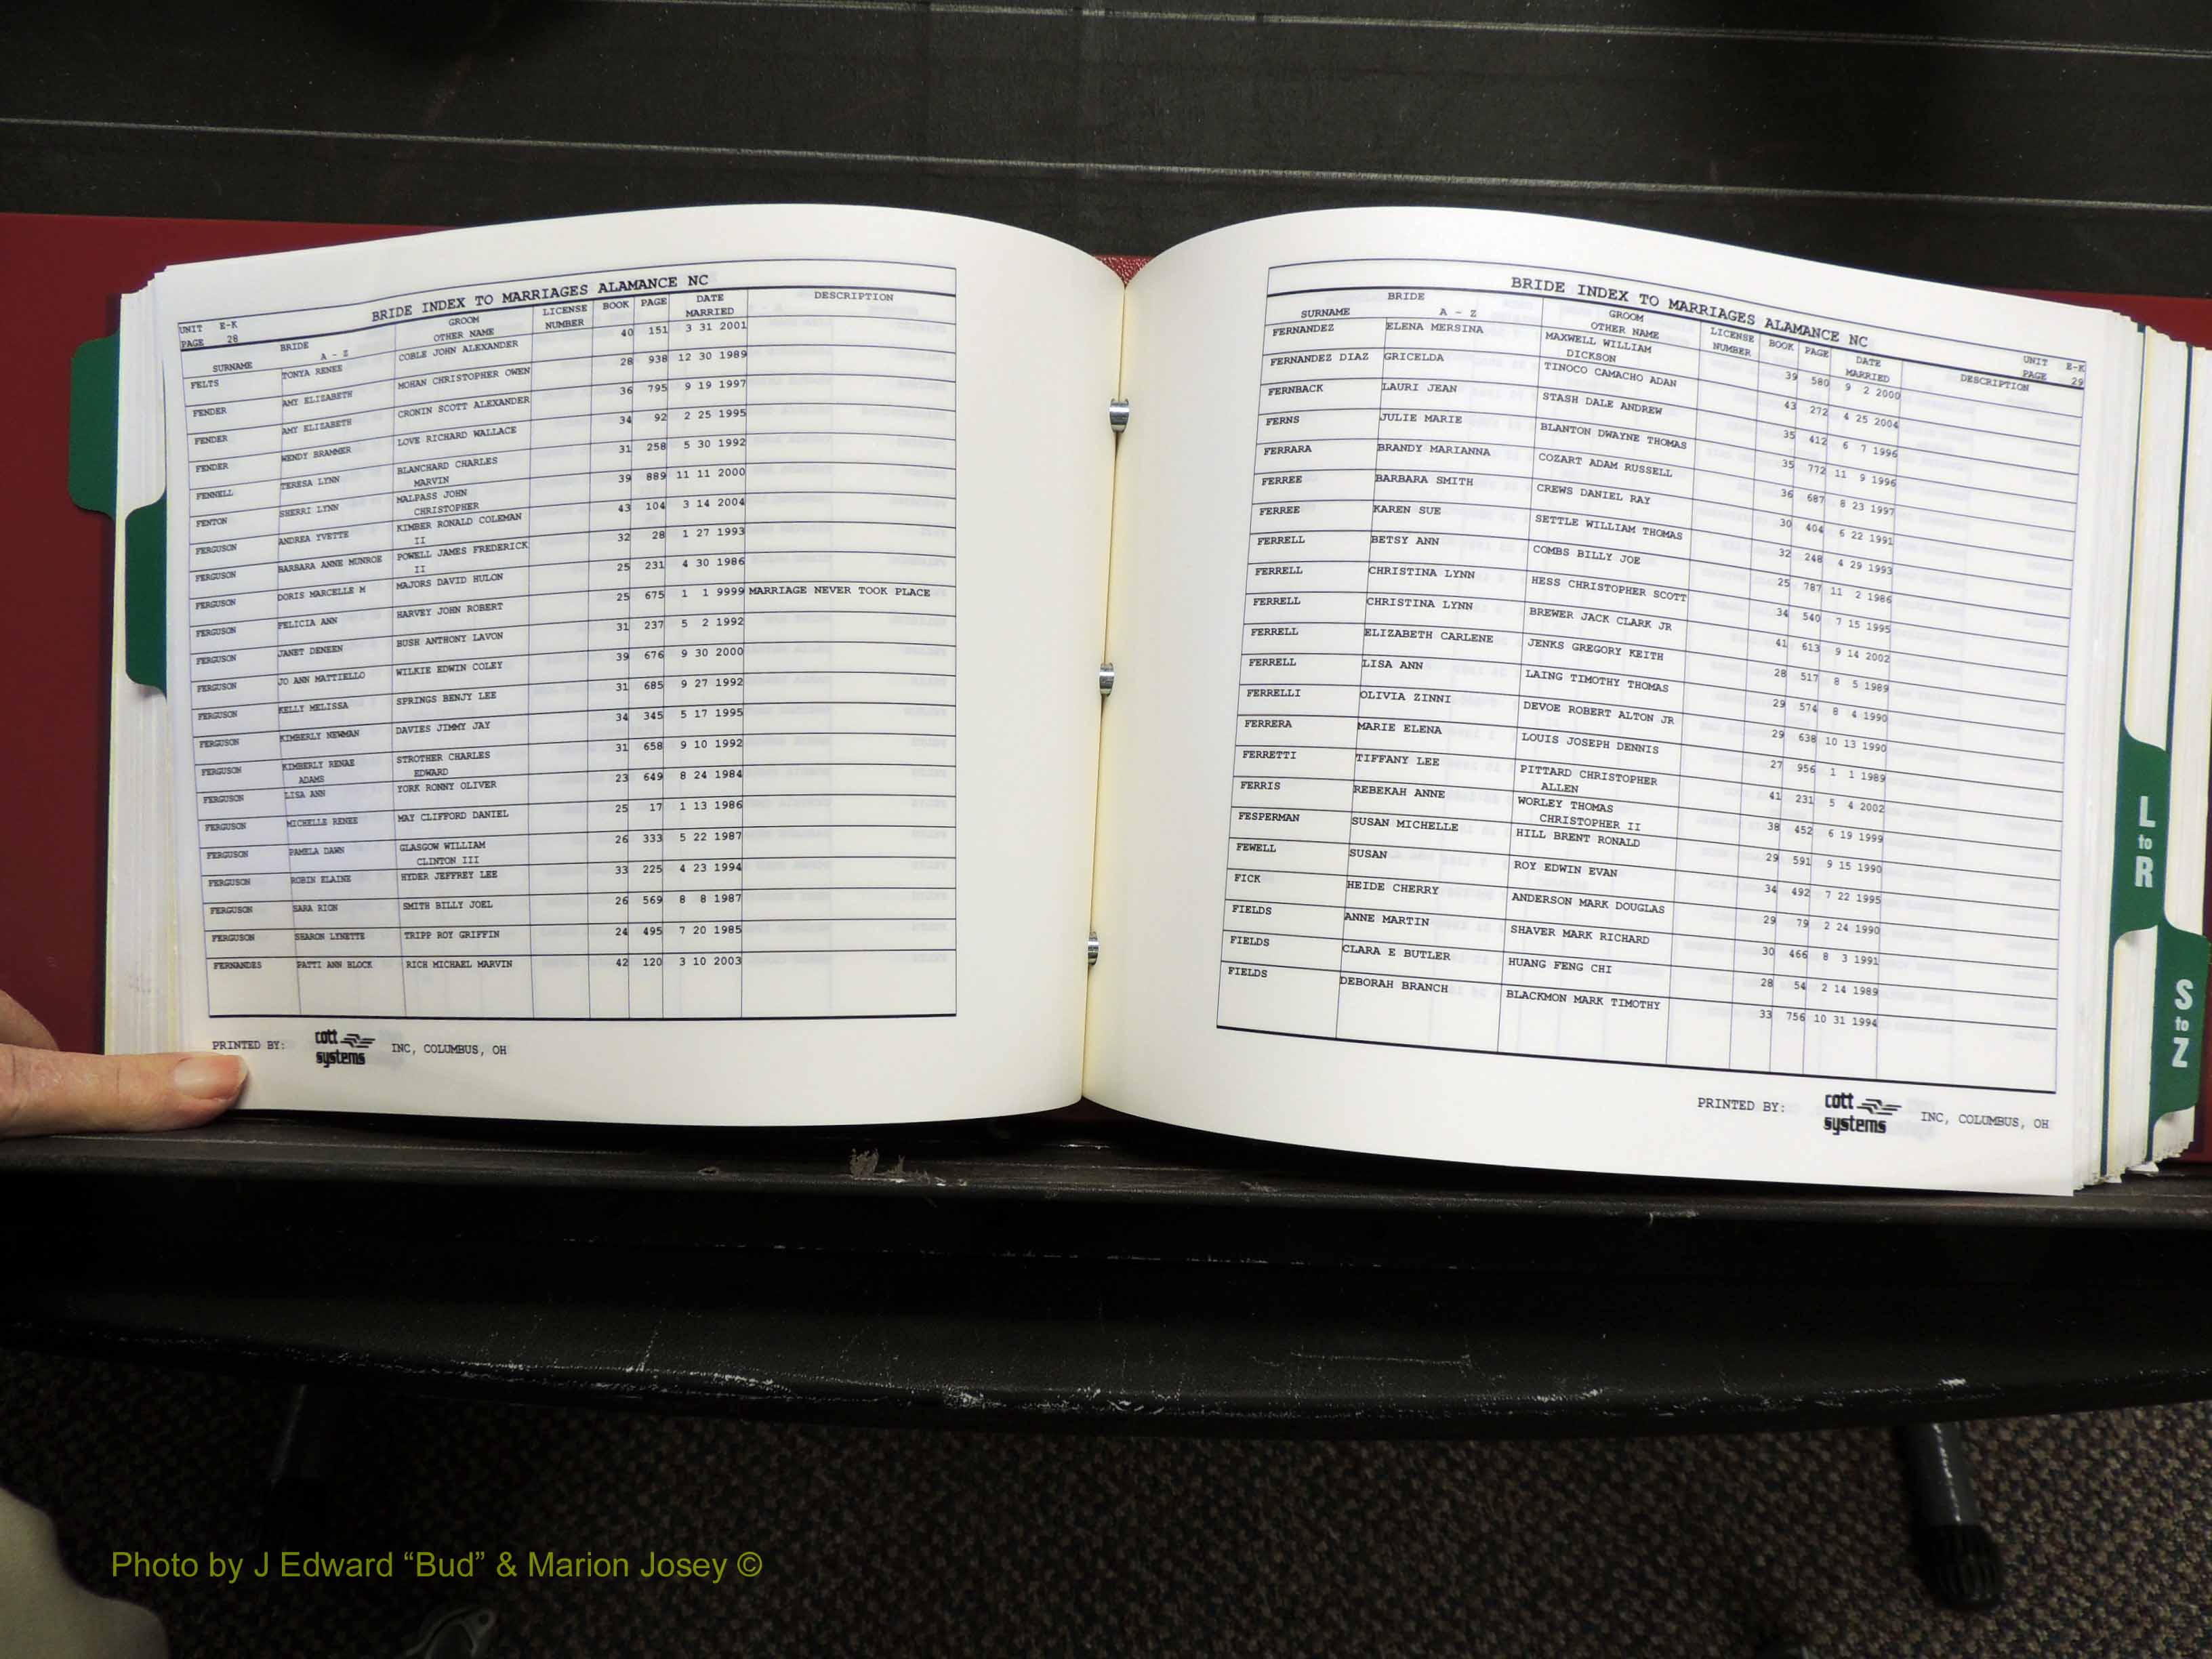 BRIDE INDEX TO MARRIAGES ALAMANCE NC
UNIT E-K
PAGE 28
SURNAME BRIDE A - Z GROOM OTHER NAME LICENSE NUMBER BOOK PAGE DATE MARRIED DESCRIPTION
FELTS TONYA RENEE COBLE JOHN ALEXANDER 40 151 3 31 2001
FENDER AMY ELIZABETH MOHAN CHRISTOPHER OWEN 28 938 12 30 1989
FENDER AMY ELIZABETH CRONIN SCOTT ALEXANDER 36 795 9 19 1997
FENDER WENDY BRAMMER LOVE RICHARD WALLACE 34 92 2 25 1995
FENNELL TERESA LYNN BLANCHARD CHARLES 31 258 5 30 1992
MARVIN
FENTON SHERRI LYNN MALPASS JOHN 39 889 11 11 2000
CHRISTOPHER
FERGUSON ANDREA YVETTE KIMBER RONALD COLEMAN 43 104 3 14 2004
II
FERGUSON BARBARA ANNE MUNROE POWELL JAMES FREDERICK 32 28 1 27 1993
II
FERGUSON DORIS MARCELLE M MAJORS DAVID HULON 25 231 4 30 1986
FERGUSON FELICIA ANN HARVEY JOHN ROBERT 25 675 1 1 9999 MARRIAGE NEVER TOOK PLACE
FERGUSON JANET DENEEN BUSH ANTHONY LAVON 31 237 5 2 1992
FERGUSON JO ANN MATTIELLO WILKIE EDWIN COLEY 39 676 9 30 2000
FERGUSON KELLY MELISSA SPRINGS BENJY LEE 31 685 9 27 1992
FERGUSON KIMBERLY NEWMAN DAVIES JIMMY JAY 34 345 5 17 1995
FERGUSON KIMBERLY RENAE STROTHER CHARLES 31 658 9 10 1992
ADAMS EDWARD
FERGUSON LISA ANN YORK RONNY OLIVER 23 649 8 24 1984
FERGUSON MICHELLE RENEE MAY CLIFFORD DANIEL 25 17 1 13 1986
FERGUSON PAMELA DAWN GLASGOW WILLIAM 26 333 5 22 1987
CLINTON III
FERGUSON ROBIN ELAINE HYDER JEFFREY LEE 33 225 4 23 1994
FERGUSON SARA RION SMITH BILLY JOEL 26 569 8 8 1987
FERGUSON SHARON LYNETTE TRIPP ROY GRIFFIN 24 495 7 20 1985
FERNANDES PATTI ANN BLOCK RICH MICHAEL MARVIN 42 120 3 10 2003
PRINTED BY: cott systems INC, COLUMBUS, OH
BRIDE INDEX TO MARRIAGES ALAMANCE NC
UNIT E-K
PAGE 29
SURNAME BRIDE A - Z GROOM OTHER NAME LICENSE NUMBER BOOK PAGE DATE MARRIED DESCRIPTION
FERNANDEZ ELENA MERSINA MAXWELL WILLIAM 39 580 9 2 2000
DICKSON
FERNANDEZ DIAZ GRICELDA TINOCO CAMACHO ADAN 43 272 4 25 2004
FERNBACK LAURI JEAN STASH DALE ANDREW 35 412 6 7 1996
FERNS JULIE MARIE BLANTON DWAYNE THOMAS 35 772 11 9 1996
FERRARA BRANDY MARIANNA COZART ADAM RUSSELL 36 687 8 23 1997
FERREE BARBARA SMITH CREWS DANIEL RAY 30 404 6 22 1991
FERREE KAREN SUE SETTLE WILLIAM THOMAS 32 248 4 29 1993
FERRELL BETSY ANN COMBS BILLY JOE 25 787 11 2 1986
FERRELL CHRISTINA LYNN HESS CHRISTOPHER SCOTT 34 540 7 15 1995
FERRELL CHRISTINA LYNN BREWER JACK CLARK JR 41 613 9 14 2002
FERRELL ELIZABETH CARLENE JENKS GREGORY KEITH 28 517 8 5 1989
FERRELL LISA ANN LAING TIMOTHY THOMAS 29 574 8 4 1990
FERRELLI OLIVIA ZINNI DEVOE ROBERT ALTON JR 29 638 10 13 1990
FERRERA MARIE ELENA LOUIS JOSEPH DENNIS 27 956 1 1 1989
FERRETTI TIFFANY LEE PITTARD CHRISTOPHER 41 231 5 4 2002
ALLEN
FERRIS REBEKAH ANNE WORLEY THOMAS 38 452 6 19 1999
CHRISTOPHER II
FESPERMAN SUSAN MICHELLE HILL BRENT RONALD 29 591 9 15 1990
FEWELL SUSAN ROY EDWIN EVAN 34 492 7 22 1995
FICK HEIDE CHERRY ANDERSON MARK DOUGLAS 29 79 2 24 1990
FIELDS ANNE MARTIN SHAVER MARK RICHARD 30 466 8 3 1991
FIELDS CLARA E BUTLER HUANG FENG CHI 28 54 2 14 1989
FIELDS DEBORAH BRANCH BLACKMON MARK TIMOTHY 33 756 10 31 1994
PRINTED BY: cott systems INC, COLUMBUS, OH
L to R
S to Z
Photo by J Edward “Bud” & Marion Josey ©